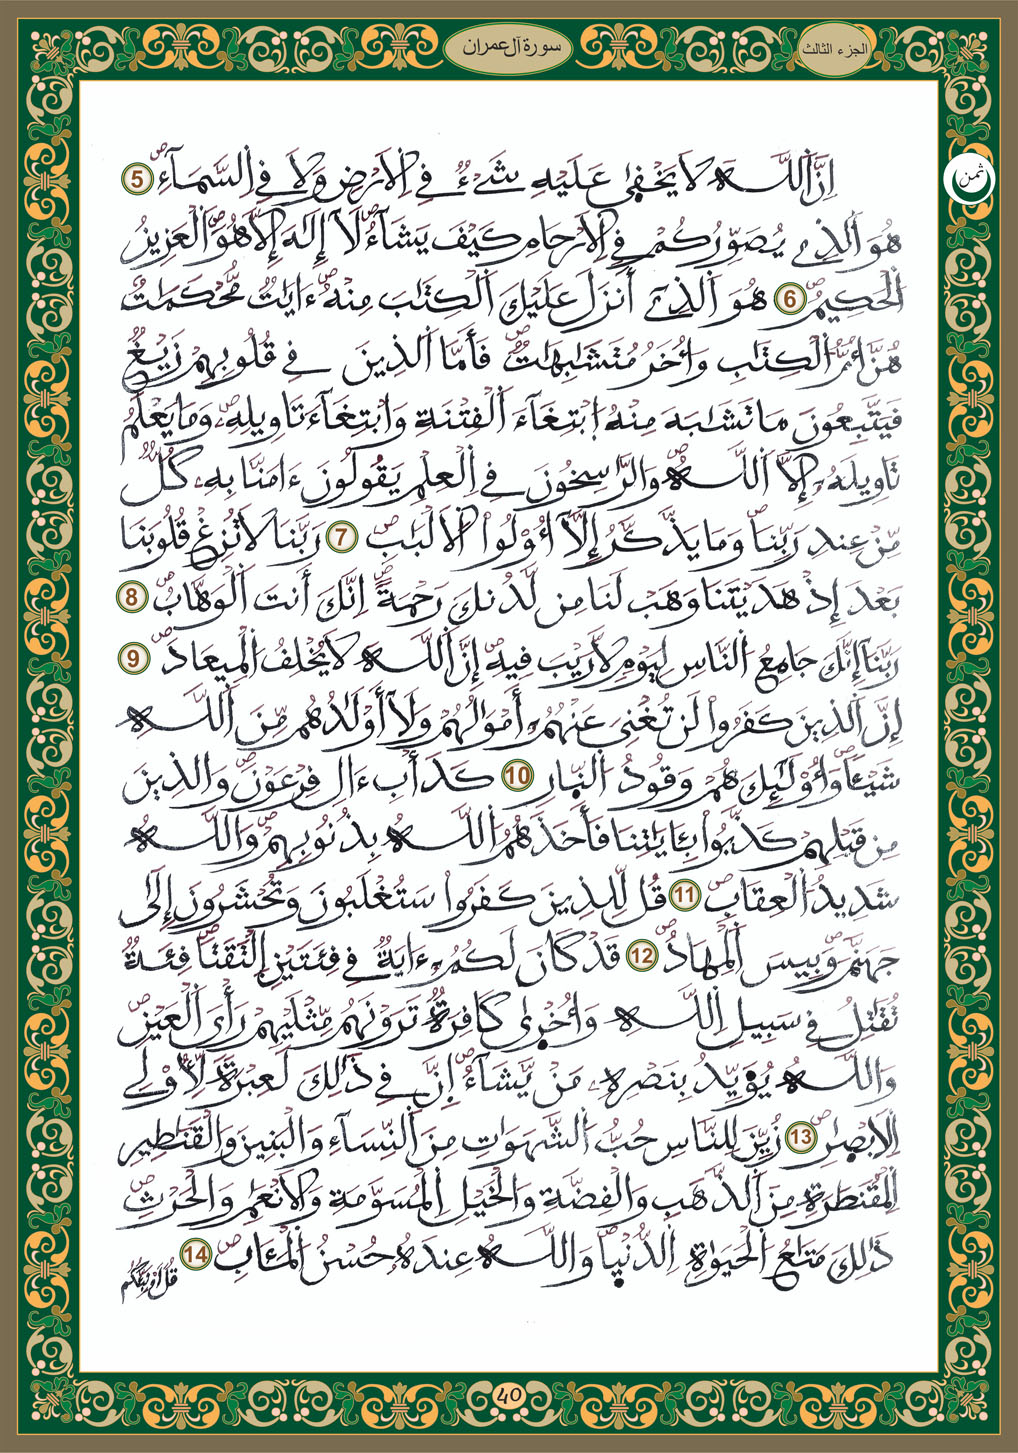 سورة آل عمران
الجزء الثالث
ثمن
إِنَّ اَللَّهَ لَا يَخْف۪ىٰ عَلَيْهِ شَےْءٞ فِے اِلَارْضِ وَلَا فِے اِلسَّمَآءِۖ 5
هُوَ اَلذِے يُصَوِّرُكُمْ فِے اِلَارْحَامِ كَيْفَ يَشَآءُۖ لَآ إِلَٰهَ إِلَّا هُوَۖ اَلْعَزِيزُ
اُلْحَكِيمُۖ 6 هُوَ اَلذِےٓ أَنزَلَ عَلَيْكَ اَلْكِتَٰبَ مِنْهُ ءَايَٰتٞ مُّحْكَمَٰتٌ
هُنَّ أُمُّ اُلْكِتَٰبِ وَأُخَرُ مُتَشَٰبِهَٰتٞۖ فَأَمَّا اَلذِينَ فِے قُلُوبِهِمْ زَيْغٞ
فَيَتَّبِعُونَ مَا تَشَٰبَهَ مِنْهُ اُ۪بْتِغَآءَ اَلْفِتْنَةِ وَابْتِغَآءَ تَاوِيلِهِۦۖ وَمَا يَعْلَمُ
تَاوِيلَهُۥٓ إِلَّا اَللَّهُۖ وَالرَّٰسِخُونَ فِے اِلْعِلْمِ يَقُولُونَ ءَامَنَّا بِهِۦ كُلّٞ
مِّنْ عِندِ رَبِّنَاۖ وَمَا يَذَّكَّرُ إِلَّآ أُوْلُواْ اُلَالْبَٰبِۖ 7 رَبَّنَا لَا تُزِغْ قُلُوبَنَا
بَعْدَ إِذْ هَدَيْتَنَا وَهَبْ لَنَا مِن لَّدُنكَ رَحْمَةًۖ اِنَّكَ أَنتَ اَلْوَهَّابُۖ 8
رَبَّنَآ إِنَّكَ جَامِعُ اُلنَّاسِ لِيَوْمٖ لَّا رَيْبَ فِيهِۖ إِنَّ اَللَّهَ لَا يُخْلِفُ اُلْمِيعَادَۖ 9
إِنَّ اَلذِينَ كَفَرُواْ لَن تُغْنِيَ عَنْهُمُۥٓ أَمْوَٰلُهُمْ وَلَآ أَوْلَٰدُهُم مِّنَ اَللَّهِ
شَيْـٔاٗۖ وَأُوْلَٰٓئِكَ هُمْ وَقُودُ اُلنّ۪ارِ 10 كَدَأْبِ ءَالِ فِرْعَوْنَۖ وَالذِينَ
مِن قَبْلِهِمْ كَذَّبُواْ بِـَٔايَٰتِنَا فَأَخَذَهُمُ اُللَّهُ بِذُنُوبِهِمْۖ وَاللَّهُ
شَدِيدُ اُلْعِقَابِۖ 11 قُل لِّلذِينَ كَفَرُواْ سَتُغْلَبُونَ وَتُحْشَرُونَ إِلَىٰ
جَهَنَّمَۖ وَبِيسَ اَلْمِهَادُۖ 12 قَدْ كَانَ لَكُمُۥٓ ءَايَةٞ فِے فِئَتَيْنِ اِلْتَقَتَاۖ فِئَةٞ
تُقَٰتِلُ فِے سَبِيلِ اِللَّهِ وَأُخْر۪ىٰ كَافِرَةٞ تَرَوْنَهُم مِّثْلَيْهِمْ رَأْيَ اَلْعَيْنِۖ
وَاللَّهُ يُؤَيِّدُ بِنَصْرِهِۦ مَنْ يَّشَآءُۖ اِنَّ فِے ذَٰلِكَ لَعِبْرَةٗ لِّأُوْلِے
اِلَابْصٰ۪رِۖ 13 زُيِّنَ لِلنَّاسِ حُبُّ اُلشَّهَوَٰتِ مِنَ اَلنِّسَآءِ وَالْبَنِينَ وَالْقَنَٰطِيرِ
اِلْمُقَنطَرَةِ مِنَ اَلذَّهَبِ وَالْفِضَّةِ وَالْخَيْلِ اِلْمُسَوَّمَةِ وَالَانْعَٰمِ وَالْحَرْثِۖ
ذَٰلِكَ مَتَٰعُ اُلْحَيَوٰةِ اِلدُّنْي۪اۖ وَاللَّهُ عِندَهُۥ حُسْنُ اُلْمَـَٔابِۖ 14
قُلَ اَوْ۬نَبِّئُكُم
40